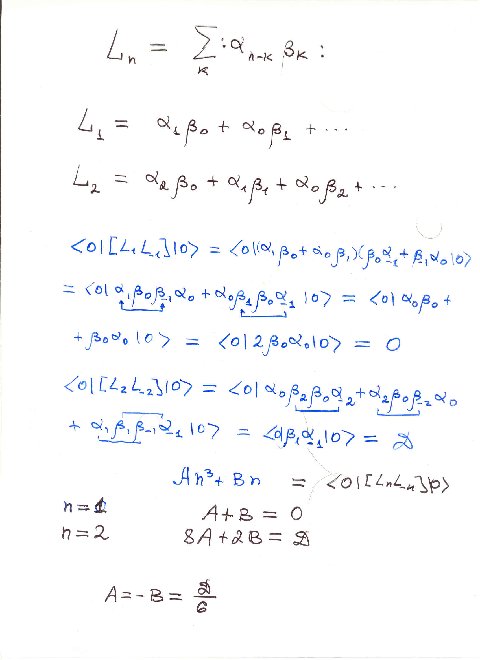 Lₙ = Σₖ :αₙ₋ₖ βₖ:
L₁ = α₁β₀ + α₀β₁ + ...
L₂ = α₂β₀ + α₁β₁ + α₀β₂ + ...
<0|[L₁L₋₁]|0> = <0|(α₁β₀ + α₀β₁)(β₀α₋₁ + β₋₁α₀|0>
= <0|α₁β₀β₋₁α₀ + α₀β₁β₀α₋₁|0> = <0|α₀β₀ +
+ β₀α₀|0> = <0|2β₀α₀|0> = 0
<0|[L₂L₋₂]|0> = <0|α₀β₂β₀α₋₂ + α₂β₀β₋₂α₀
+ α₁β₁β₋₁α₋₁|0> = <0|β₁α₋₁|0> = D
An³ + Bn = <0|[LₙL₋ₙ]|0>
n = 1 A + B = 0
n = 2 8A + 2B = D
A = -B = D/6